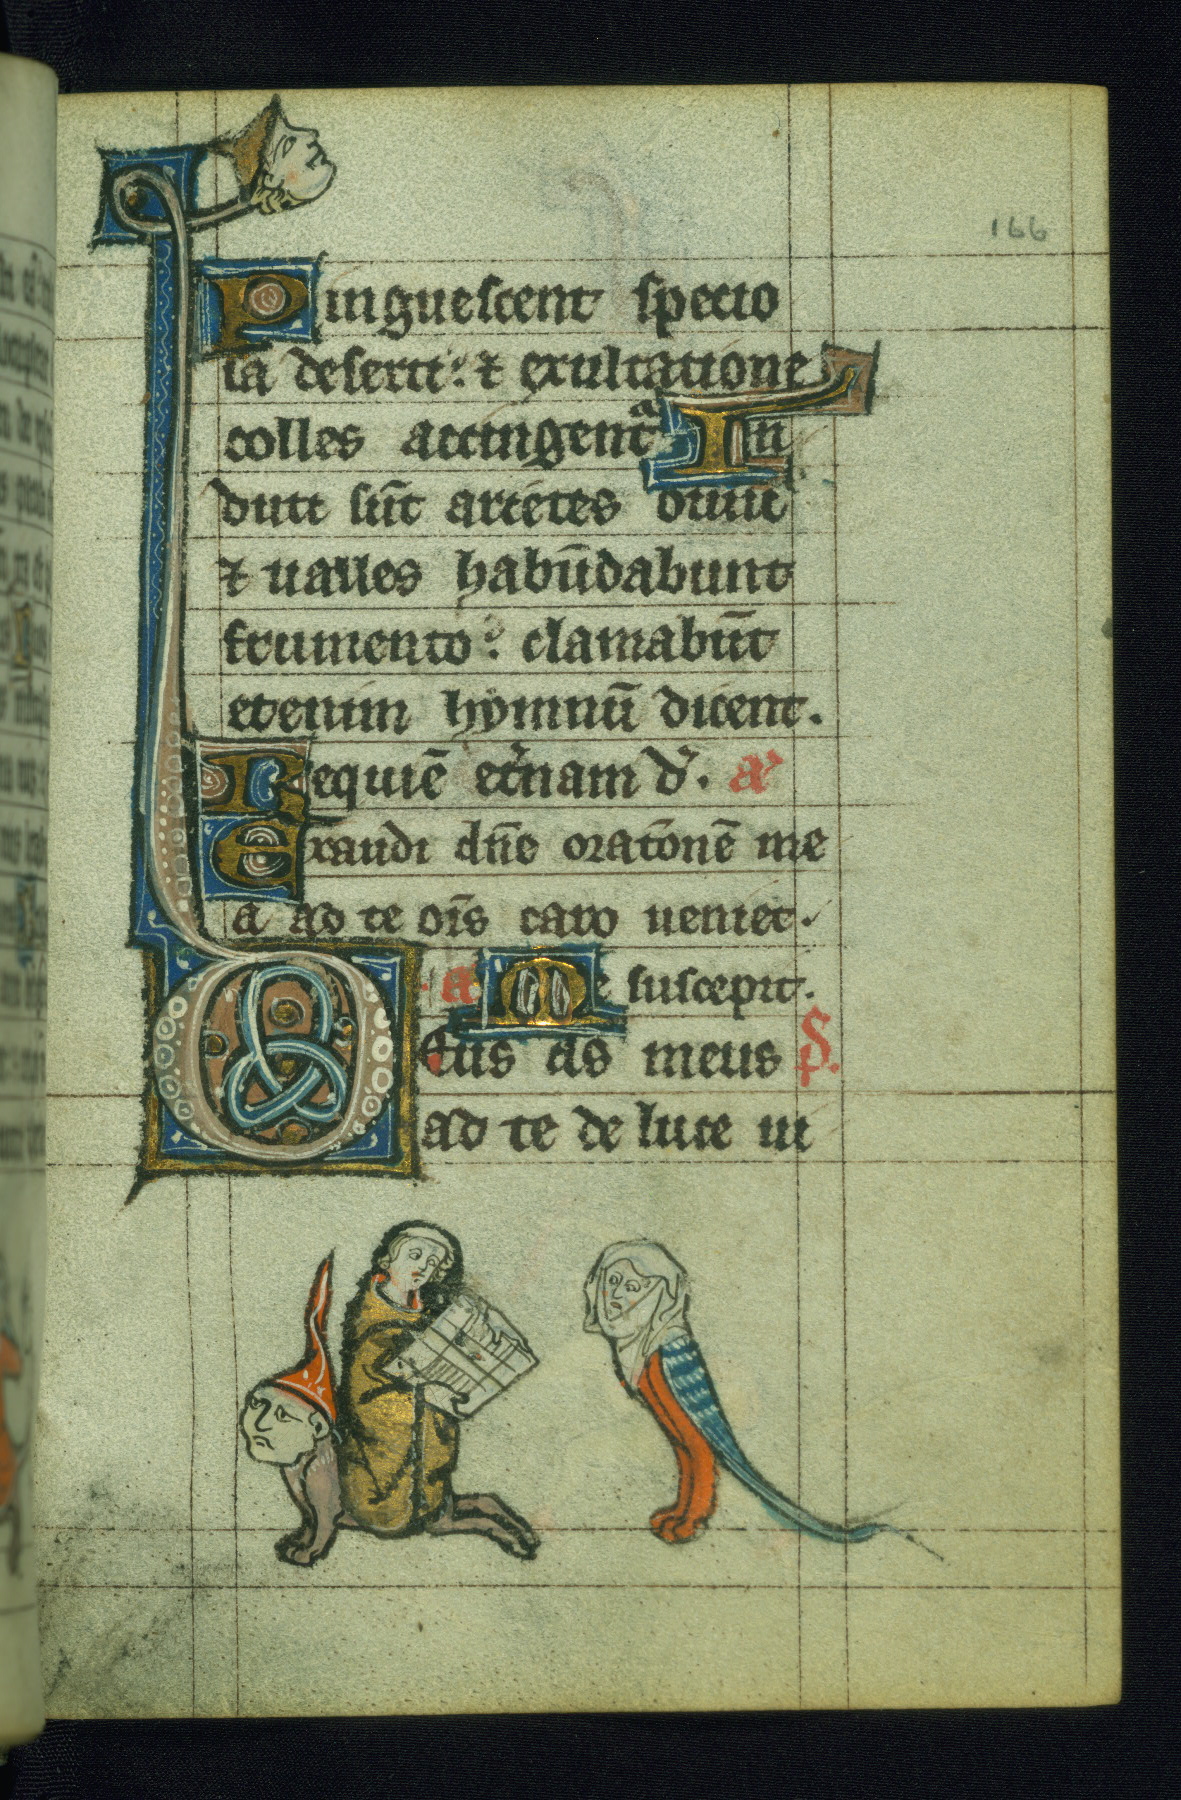 166
Pinguescent specio
sa deserti: ⁊ exultatione
colles accingent᷑ In
duti su̅t arietes ouiu̅
⁊ ualles habu̅dabunt
frumento: clamabu̅t
etenim hymnu̅ dicent.
Requie̅ et̾nam d̾. a᷑
Exaudi dn̅e orat̅one̅ me
a ad te om̅s caro ueniet.
a Me suscepit.
Deus ds meus ps.
ad te de luce ui